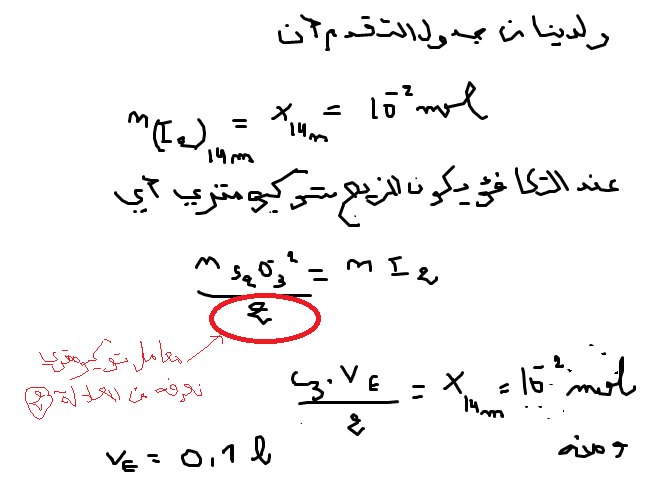 ولدينا من جدول التقدم أن
n(I2)14m = x14m = 10^-2 mol
عند التكافؤ يكون المزيج ستوكيومتري أي
n S2O3^2- / 2 = n I2
معامل ستوكيومتري
نعرفه من المعادلة
C3.VE / 2 = x14m = 10^-2 mol
ومنه
VE = 0,1 l